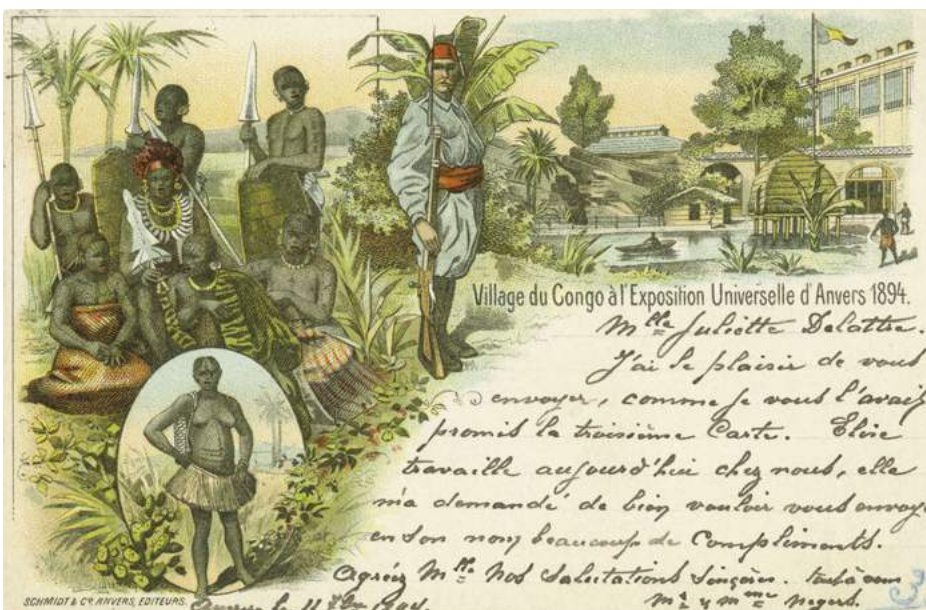 Village du Congo à l'Exposition Universelle d'Anvers 1894.
Mlle Juliette Delattre.
J'ai le plaisir de vous
envoyer, comme je vous l'avais
promis la troisième Carte. Elise
travaille aujourd'hui chez nous, elle
m'a demandé de bien vouloir vous envoye
en son nom beaucoup de Compliments.
Agréez Mlle Nos Salutations Sincères. tout à vous
Mr & Mme
SCHMIDT & Co ANVERS, EDITEURS. Anvers le 11
3